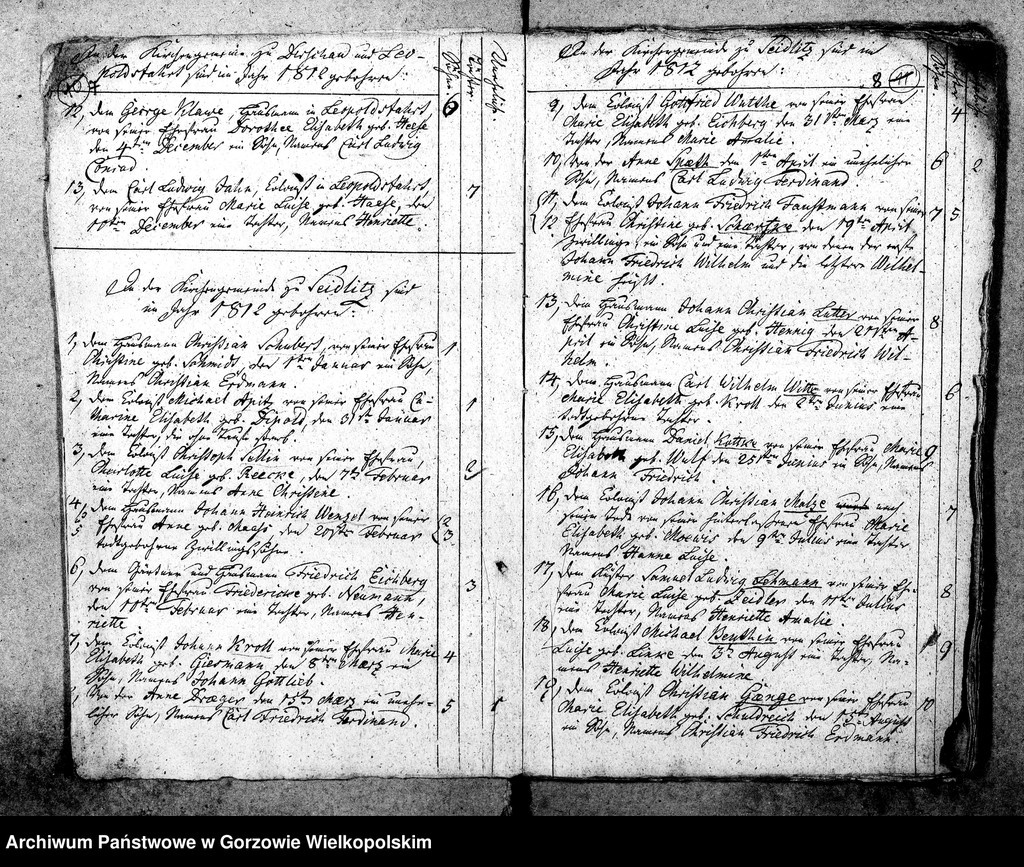 In der Kirchengemeine zu Dirschau und Leo-
poldsfahrt sind im Jahr 1812 gebohren:
7
Söhne.
Töchter.
Unehelich.
12, dem George Klawe, Hausmann in Leopoldsfahrt,
von seiner Ehefrau Dorothee Elisabeth geb. Haese
den 4ten December ein Sohn, Namens Carl Ludwig
Conrad
6
13, dem Carl Ludwig Jahn, Colonist in Leopoldsfahrt,
von seiner Ehefrau Marie Luise geb. Haase, den
10ten December eine Tochter, Namens Henriette.
7
In der Kirchengemeinde zu Seidlitz sind
im Jahr 1812 gebohren:
1, dem Hausmann Christian Schubert, von seiner Ehefrau
Christine geb. Schmidt, den 1ten Januar ein Sohn,
Namens Christian Erdmann.
1
2, dem Colonist Michael Apitz von seiner Ehefrau Ca-
tharine Elisabeth geb. Dipold, den 31st Januar
eine Tochter, die ohne Taufe starb.
1
3, dem Colonist Christoph Sellin von seiner Ehefrau,
Charlotte Luise geb. Reecke, den 7ten Februar
eine Tochter, Namens Anne Christine.
2
4, dem Hausmann Johann Heinrich Wenzel von seiner
5 Ehefrau Anne geb. Maass den 20sten Februar
todtgebohrne Zwillingssöhne.
2
3
6, dem Gärtner und Hausmann Friedrich Eichberg
von seiner Ehefrau Friedericke geb. Neumann,
den 10ten Februar eine Tochter, Namens Hen-
riette
3
7, dem Colonist Johann Krott von seiner Ehefrau Marie
Elisabeth geb. Giermann den 8ten März ein
Sohn, Namens Johann Gottlieb.
4
Von der Anne Draeger den 15ten März ein unehe-
licher Sohn, Namens Carl Friedrich Ferdinand.
5
1
In der Kirchengemeinde zu Seidlitz sind im
Jahr 1812 gebohren:
8
9, dem Colonist Gottfried Wutthe von seiner Ehefrau
Marie Elisabeth geb. Eichberg den 31sten März eine
Tochter, Namens Marie Amalie.
4
10, Von der Anne Spaeth den 1ten April ein unehelicher
Sohn, Namens Carl Ludwig Ferdinand
6
2
11, dem Colonist Johann Friedrich Faustmann von seiner
12 Ehefrau Christine geb. den 19ten April
Zwillinge, ein Sohn und eine Tochter, von denen der erste
Johann Friedrich Wilhelm und die letztere Wilhel-
mine heißt.
7
5
13, dem Hausmann Johann Christian Lutter von seiner
Ehefrau Christine Luise geb. Hennig den 21sten A-
pril ein Sohn, Namens Christian Friedrich Wil-
helm.
8
14, dem Hausmann Carl Wilhelm Witte von seiner Ehefrau
Marie Elisabeth geb. Krott den 2ten Junius eine
todtgebohrne Tochter.
6
15, dem Hausmann Daniel von seiner Ehefrau Marie
Elisabeth geb. Wulf den 25sten Junius ein Sohn, Namens
Johann Friedrich.
9
16, dem Colonist Johann Christian Matze nach
seinem Tode von seiner hinterlassenen Ehefrau Marie
Elisabeth geb. Moewis den 9ten Julius eine Tochter
Namens Hanne Luise.
7
17, dem Küster Samuel Ludwig Lehmann von seiner Ehe-
frau Marie Luise geb. Zeidler den 11ten Julius
eine Tochter, Namens Henriette Amalie.
8
18, dem Colonist Michael Benthin von seiner Ehefrau
Luise geb. Linke den 3ten August eine Tochter, Na-
mens Henriette Wilhelmine
9
19, dem Colonist Christian Gaenge von seiner Ehefrau
Marie Elisabeth geb. Schuldreich den 15ten August
ein Sohn, Namens Christian Friedrich Erdmann
10
Archiwum Państwowe w Gorzowie Wielkopolskim